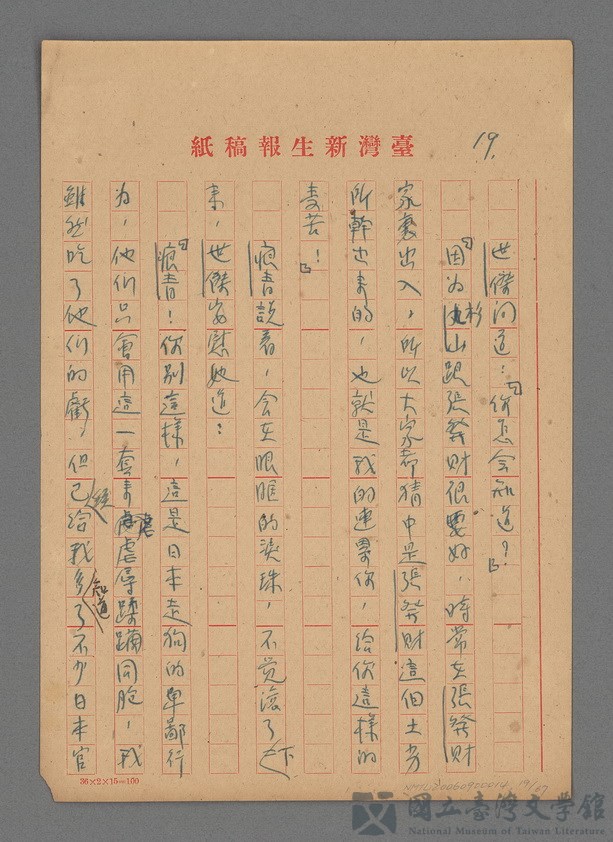 臺灣新生報稿紙
19.
世傑问道：「你怎会知道？」
「因为杉山跟張發財很要好，時常在張發財
家裏出入，所以大家都猜中是張發財這個土劣
所幹出来的，也就是我的連累你，給你這樣的
麦苦！」
痕青説着，含在眼眶的淚珠，不覚滾了下
来，世傑安慰她道：
「痕青！你别這樣，這是日本走狗的卑鄙行
为，他们只會用這一套来虐辱蹂躪同胞，我
雖然吃了他们的虧，但已經給我多知道了不少日本官
36×2×15=100
NMTL20060920014 19/27
國立臺灣文學館
National Museum of Taiwan Literature